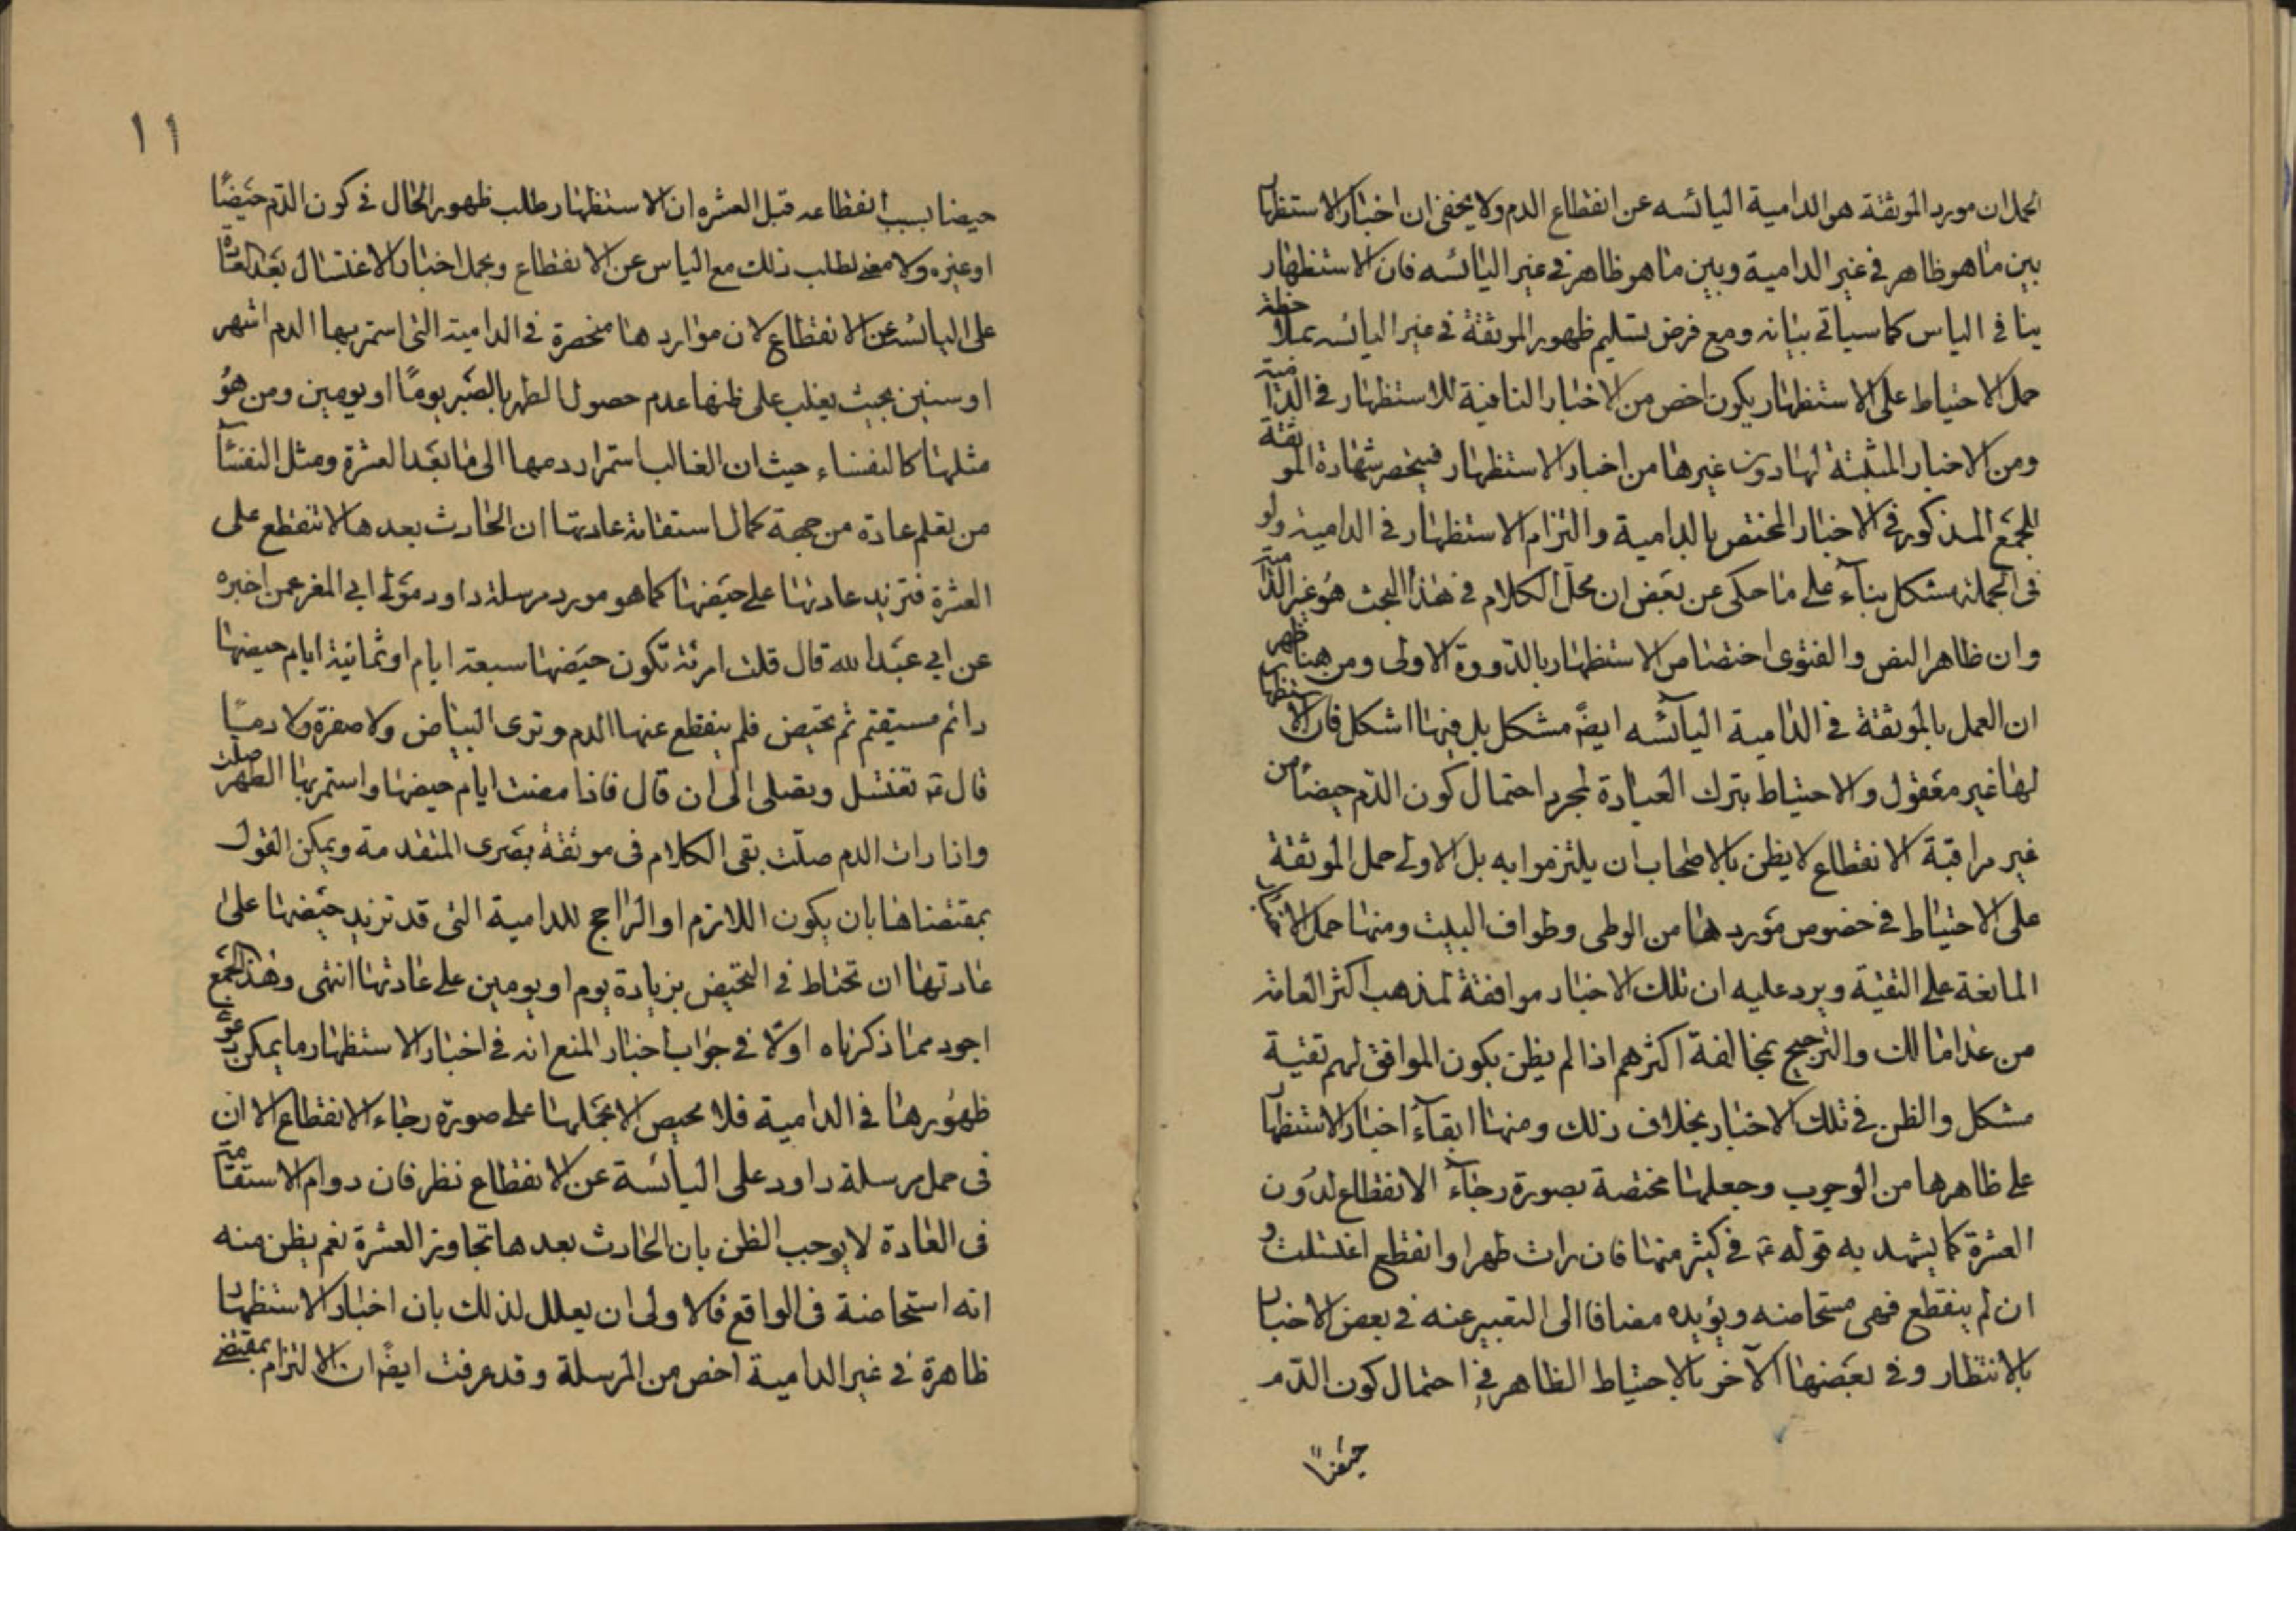 الحمل ان مورد الموثقة هو الدامية اليائسه عن انقطاع الدم ولا يخفى ان اخبار الاستظهار
بين ما هو ظاهر في غير الدامية وبين ما هو ظاهر في غير اليائسه فان الاستظهار
ينافي الياس كما سياتي بيانه ومع فرض تسليم ظهور الموثقة في غير اليائسه بملاحظة
حمل الاحتياط على الاستظهار يكون اخص من الاخبار النافية للاستظهار في الدامية
ومن الاخبار المثبتة لها دون غيرها من اخبار الاستظهار فينحصر شهادة الموثقة
للجمع المذكور في الاخبار المختص بالدامية والتزام الاستظهار في الدامية ولو
في الجملة مشكل بناء على ما حكى عن بعض ان محل الكلام في هذا البحث هو غير الدامية
وان ظاهر النص والفتوى اختصاص الاستظهار بالدورة الاولى ومن هنا ظهر
ان العمل بالموثقة في الدامية اليائسه ايضً مشكل بل فيها اشكل فان الاستظهار
لها غير معقول والاحتياط بترك العبادة لمجرد احتمال كون الدم حيضاً من
غير مراقبة الانقطاع لا يظن بالاصحاب ان يلتزموا به بل الاولى حمل الموثقة
على الاحتياط في خصوص موردها من الوطى وطواف البيت ومنها حمل الاخبار
المانعة على التقية ويرد عليه ان تلك الاخبار موافقة لمذهب اكثر العامة
من عدا مالك والترجيح بمخالفة اكثرهم اذا لم يظن بكون الموافق لهم تقية
مشكل والظن في تلك الاخبار بخلاف ذلك ومنها ابقاء اخبار الاستظهار
على ظاهرها من الوجوب وجعلها مختصة بصورة رجاء الانقطاع لدون
العشرة كما يشهد به قوله ع في كثير منها فان رات طهرا وانقطع اغتسلت و
ان لم ينقطع فهى مستحاضه ويؤيده مضافا الى التعبير عنه في بعض الاخبار
بالانتظار وفي بعضها الآخر بالاحتياط الظاهر في احتمال كون الدم
حيضاً
١١
حيضا بسبب انقطاعه قبل العشره ان الاستظهار طلب ظهور الحال في كون الدم حيضًا
او غيره ولا معنى لطلب ذلك مع الياس عن الانقطاع ويحمل اخبار الاغتسال بعد العادة
على اليائسه عن الانقطاع لان مواردها منحصرة في الدامية التى استمر بها الدم اشهر
او سنين بحيث يغلب على ظنها عدم حصول الطهر بالصبر يومًا او يومين ومن هو
مثلها كالنفساء حيث ان الغالب استمرار دمها الى ما بعد العشرة ومثل النفساء
من تعلم عادة من جهة كمال استقامة عادتها ان الحادث بعدها لا تنقطع على
العشرة فتزيد عادتها على حيضها كما هو مورد مرسلة داود مولى ابي المغر عمن اخبره
عن ابي عبد الله قال قلت امرئة تكون حيضها سبعة ايام او ثمانية ايام حيضها
دائم مستقيم ثم تحيض فلم ينقطع عنها الدم وترى البياض ولا صفرة ولا دمًا
قال ع تغتسل وتصلى الى ان قال فاذا مضت ايام حيضها واستمر بها الطهر صلت
واذا رات الدم صلّت بقى الكلام في موثقة بصرى المتقدمة ويمكن القول
بمقتضاها بان يكون اللازم او الراجح للدامية التى قد تزيد حيضها على
عادتها ان تحتاط في التحيض بزيادة يوم او يومين على عادتها انتهى وهذا الجمع
اجود مما ذكرناه اولا في جواب اخبار المنع انه في اخبار الاستظهار ما يمكن دعوى
ظهورها في الدامية فلا محيص الا بحملها على صورة رجاء الانقطاع الا ان
في حمل مرسلة داود على اليائسة عن الانقطاع نظر فان دوام الاستقامة
في العادة لا يوجب الظن بان الحادث بعدها تجاوز العشرة نعم يظن منه
انه استحاضة في الواقع فالاولى ان يعلل لذلك بان اخبار الاستظهار
ظاهرة في غير الدامية اخص من المرسلة وقد عرفت ايضً ان الالتزام بمقتضى